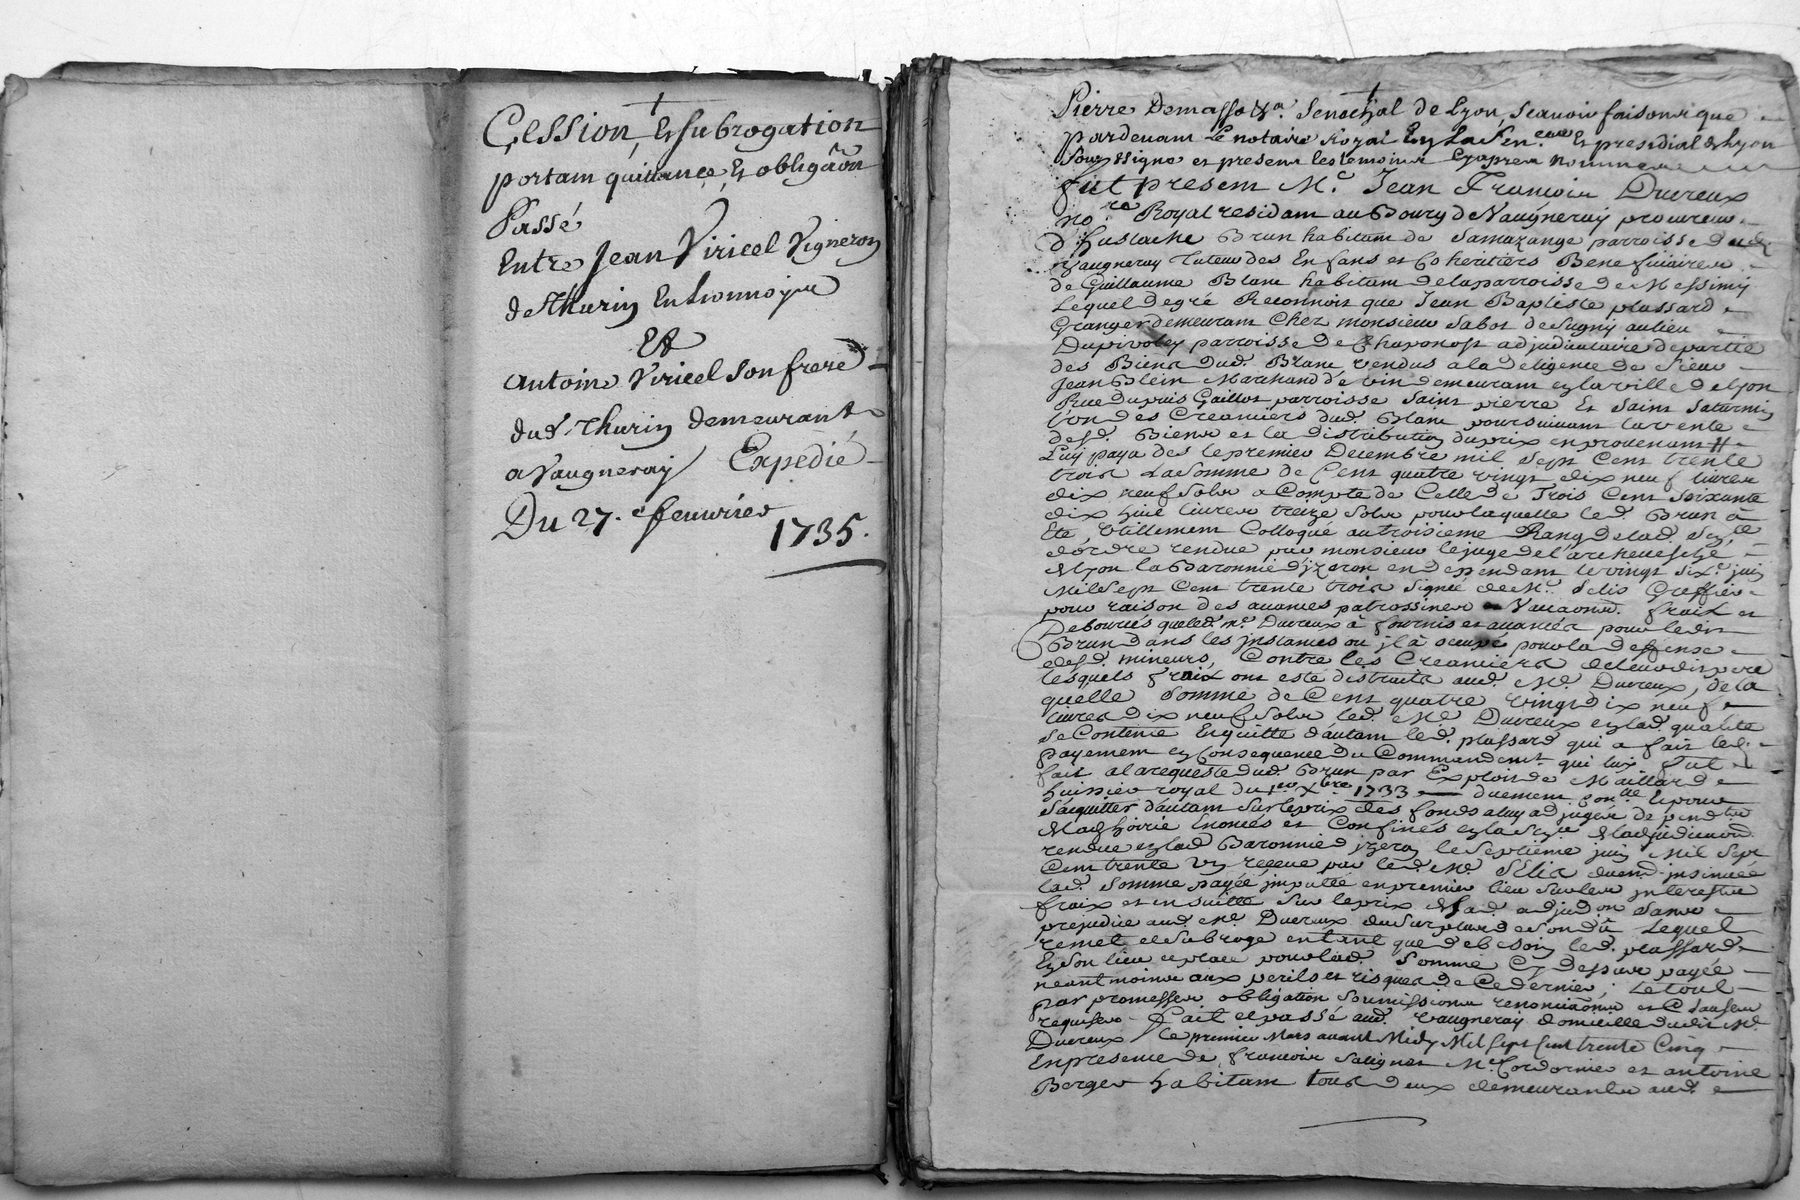 Cession, Et subrogation
portam quittance, Et obligâôn
Passé
Entre Jean Viricel Vigneron
de Thurin En Lionnoyx
Et
Antoine Viricel son frere
dud. Thurin demeurant
a Vaugneray Expedié
Du 27. feuvrier
1735.
Pierre Demasso &a. Senechal de Lyon, scavoir faisons que
pardevam Le notaire Royal En La Sen.cée Et presidial de Lyon
soussigné et presens les temoins Cyapres nommés
fut presem M.e Jean François Ducreux
no.re Royal residam au Bourg de Vaugneray procureur
d'Eustache Brun habitam de Samazange parroisse dud.
Vaugneray Tuteur des Enfans et Coheritiers Beneficiaires
de Guillaume Blanc habitam de la parroisse de Messimy
Lequel de gré Reconnoit que Jean Baptiste plassard
Granger demeuram Chez monsieur Sabot de Sugny au lieu
Du pivoley parroisse de Chaponost adjudicataire de partie
des Biens dud. Blanc vendus a la diligence de sieur
Jean Blein Marchand de vin demeuram en la ville de Lyon
Rue du puis Gaillot parroisse saint pierre Et saint saturnin
l'un des Creanciers dud. Blanc poursuivam la vente
desd. Biens et la distribution du prix en provenam
Luy paya des le premier Decembre mil sept Cent trente
trois La somme de Cent quatre vingt dix neuf livres
dix neuf sols a Compte de Celle de Trois Cent soixante
dix huit livres treize sols pour laquelle led. Brun à
Eté Utillement Colloqué au troisieme Rang de lad. sen.ce
d'ordre rendue par monsieur le juge de l'archevesché
de Lyon la Baronnie d'jzeron en dependam le vingt six.e juin
Mil sept Cent trente trois signée de M.e Selis Greffier
pour raison des avances patrossines Vacaôns. fraix et
Deboursés que led. M.e Ducreux à fournis et avancés pour ledit
Brun dans les jnstances ou jl à occupé pour la deffense
desd. mineurs, Contre les Creanciers de leur dit pere
lesquels fraix ont esté distraits aud. M.e Ducreux, de la
quelle somme de Cent quatre vingt dix neuf
livres dix neuf sols led. M.e Ducreux en lad. qualité
se Contente En quitte d'autam led. plassard qui a fait led.
payement en Consequence du Commandem.t qui luy fut
fait a la requeste dud. Brun par Exploit de Maillard
huissier royal du 1.er Xbre 1733 duement Con.llé Et pour
s'acquitter d'autam sur le prix des fonds a luy adjugés de pend.ts
de lad. hoirie Enoncés et Confinés en la sen.ce d'adjudicaôn
rendue en lad. Baronnie d'jzeron le septieme juin Mil sept
Cent trente un reçeue par led. M.e Selis duem.t insinuée
lad. somme payée jmputée en premier lieu sur les jnterests
fraix et en suitte sur le prix de lad. adjud.on sans
prejudice aud. M.e Ducreux du surplus de son dû Lequel
remet et subroge entant que de besoin led. plassard
En son lieu et place pour lad. somme Cy dessus payée
neantmoins aux perils et risques de Ce dernier; Le tout
par promesses obligation soumissions renonciaôns et Clauses
requises. Fait et passé aud. Vaugneray domicille dudit M.e
Ducreux le premier Mars avant Midy Mil sept Cent trente Cinq
En presence de françois Salignat M.e Cordonnier et antoine
Berger habitam tous deux demeurants aud.